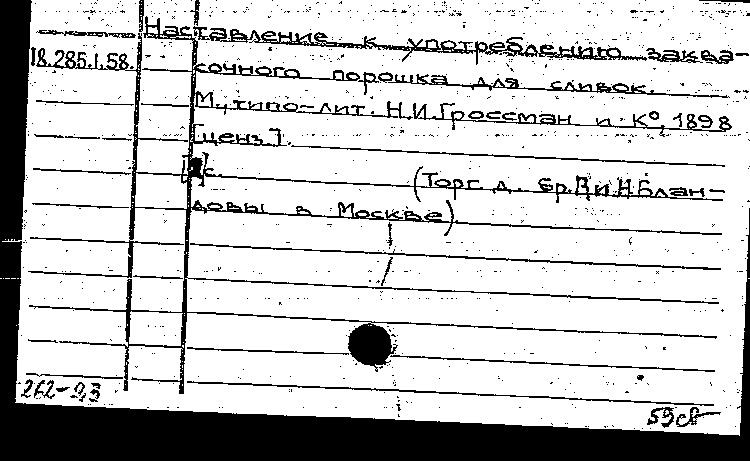 Наставление к употреблению заква-
18.285.1.58. сочного порошка для сливок.
М., типо-лит. Н.И.Гроссман и К°, 1898
[ценз].
с. (Торг. д. бр. В. и Н. Блан-
довы в Москве).
262-93